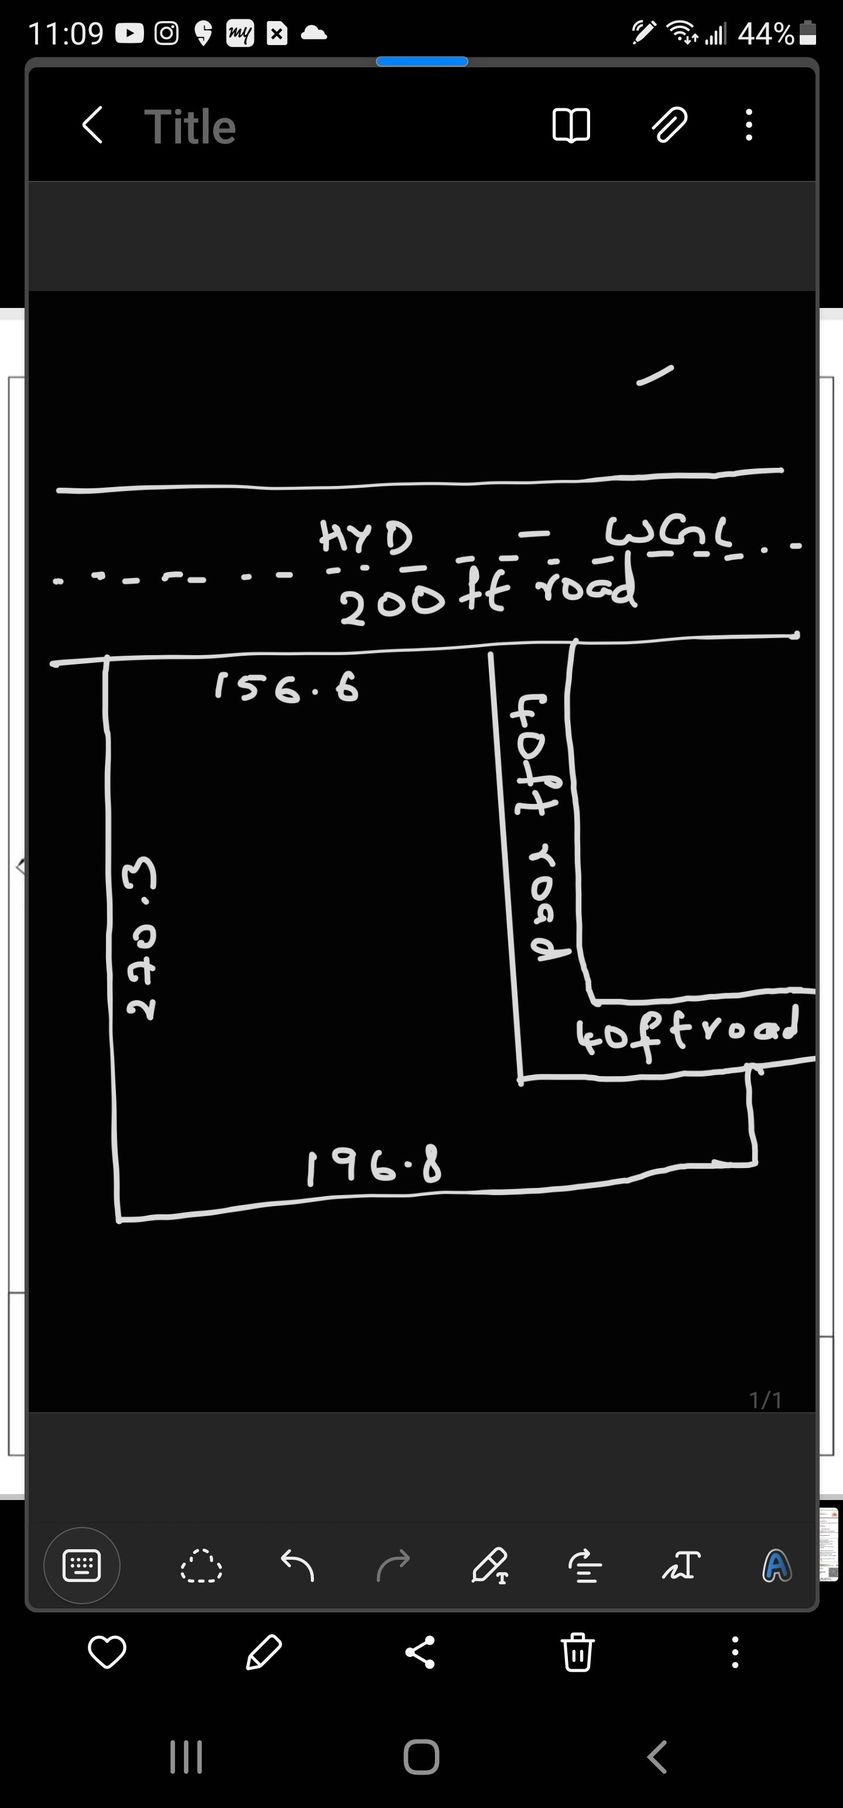 11:09 my 44%
Title
HYD - WGL
200 ft road
156.6
40ft road
270.3
40ft road
196.8
1/1
T
T
A